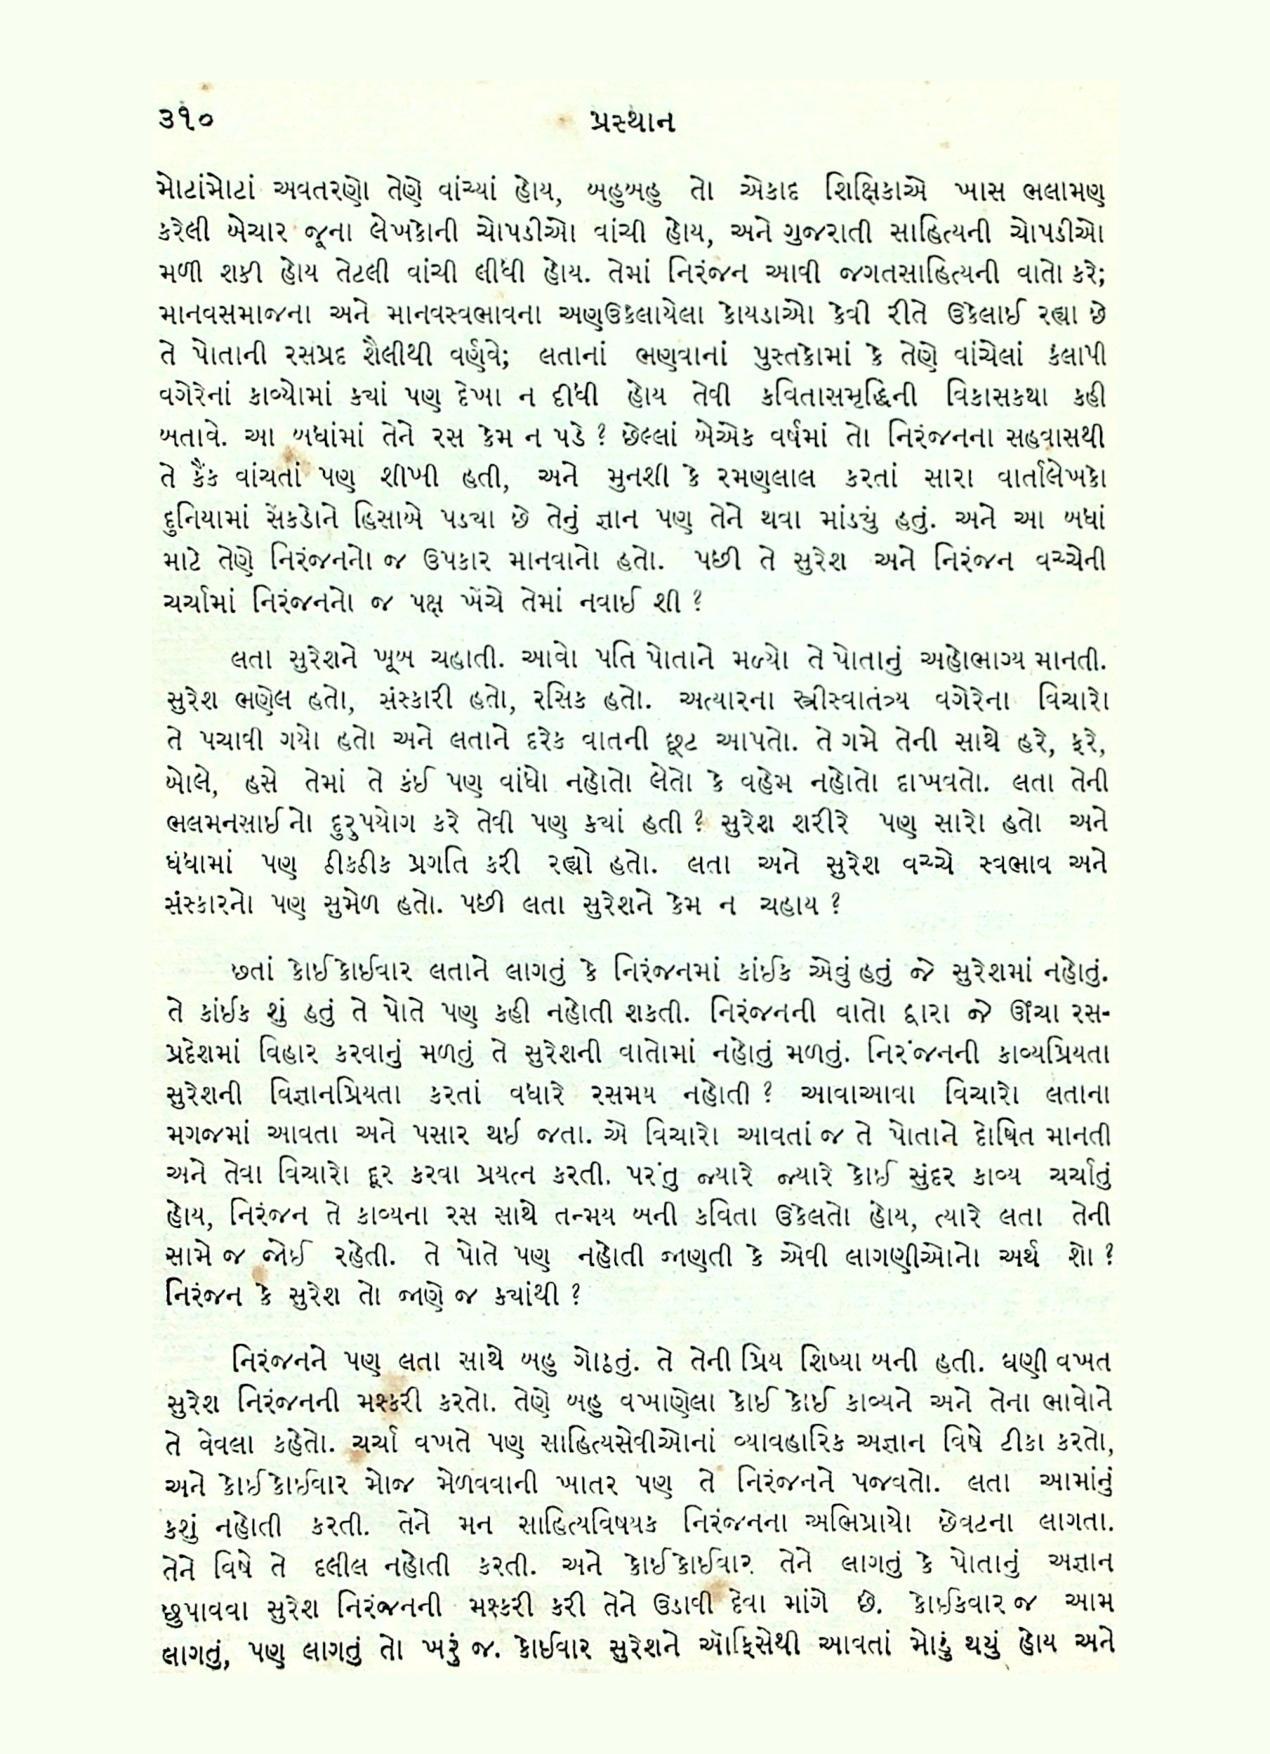 ૩૧૦ પ્રસ્થાન
મોટાંમોટાં અવતરણો તેણે વાંચ્યાં હોય, બહુબહુ તો એકાદ શિક્ષિકાએ ખાસ ભલામણ
કરેલી બેચાર જૂના લેખકોની ચોપડીઓ વાંચી હોય, અને ગુજરાતી સાહિત્યની ચોપડીઓ
મળી શકી હોય તેટલી વાંચી લીધી હોય. તેમાં નિરંજન આવી જગતસાહિત્યની વાતો કરે;
માનવસમાજના અને માનવસ્વભાવના અણઉકેલાયેલા કોયડાઓ કેવી રીતે ઉકેલાઈ રહ્યા છે
તે પોતાની રસપ્રદ શૈલીથી વર્ણવે; લતાનાં ભણવાનાં પુસ્તકોમાં કે તેણે વાંચેલાં કલાપી
વગેરેનાં કાવ્યોમાં ક્યાં પણ દેખા ન દીધી હોય તેવી કવિતાસમૃદ્ધિની વિકાસકથા કહી
બતાવે. આ બધાંમાં તેને રસ કેમ ન પડે ? છેલ્લાં બેએક વર્ષમાં તો નિરંજનના સહવાસથી
તે કૈંક વાંચતાં પણ શીખી હતી, અને મુનશી કે રમણલાલ કરતાં સારા વાર્તાલેખકો
દુનિયામાં સેંકડોને હિસાબે પડ્યા છે તેનું જ્ઞાન પણ તેને થવા માંડ્યું હતું. અને આ બધાં
માટે તેણે નિરંજનનો જ ઉપકાર માનવાનો હતો. પછી તે સુરેશ અને નિરંજન વચ્ચેની
ચર્ચામાં નિરંજનનો જ પક્ષ ખેંચે તેમાં નવાઈ શી ?
લતા સુરેશને ખૂબ ચહાતી. આવો પતિ પોતાને મળ્યો તે પોતાનું અહોભાગ્ય માનતી.
સુરેશ ભણેલ હતો, સંસ્કારી હતો, રસિક હતો. અત્યારના સ્ત્રીસ્વાતંત્ર્ય વગેરેના વિચારો
તે પચાવી ગયો હતો અને લતાને દરેક વાતની છૂટ આપતો. તે ગમે તેની સાથે હરે, ફરે,
બોલે, હસે તેમાં તે કંઈ પણ વાંધો નહોતો લેતો કે વહેમ નહોતો દાખવતો. લતા તેની
ભલમનસાઈનો દુરુપયોગ કરે તેવી પણ ક્યાં હતી ? સુરેશ શરીરે પણ સારો હતો અને
ધંધામાં પણ ઠીકઠીક પ્રગતિ કરી રહ્યો હતો. લતા અને સુરેશ વચ્ચે સ્વભાવ અને
સંસ્કારનો પણ સુમેળ હતો. પછી લતા સુરેશને કેમ ન ચહાય ?
છતાં કોઈકોઈવાર લતાને લાગતું કે નિરંજનમાં કાંઈક એવું હતું જે સુરેશમાં નહોતું.
તે કાંઈક શું હતું તે પોતે પણ કહી નહોતી શકતી. નિરંજનની વાતો દ્વારા જે ઊંચા રસ-
પ્રદેશમાં વિહાર કરવાનું મળતું તે સુરેશની વાતોમાં નહોતું મળતું. નિરંજનની કાવ્યપ્રિયતા
સુરેશની વિજ્ઞાનપ્રિયતા કરતાં વધારે રસમય નહોતી ? આવાઆવા વિચારો લતાના
મગજમાં આવતા અને પસાર થઈ જતા. એ વિચારો આવતાં જ તે પોતાને દોષિત માનતી
અને તેવા વિચારો દૂર કરવા પ્રયત્ન કરતી. પરંતુ જ્યારે જ્યારે કોઈ સુંદર કાવ્ય ચર્ચાતું
હોય, નિરંજન તે કાવ્યના રસ સાથે તન્મય બની કવિતા ઉકેલતો હોય, ત્યારે લતા તેની
સામે જ જોઈ રહેતી. તે પોતે પણ નહોતી જાણતી કે એવી લાગણીઓનો અર્થ શો ?
નિરંજન કે સુરેશ તો જાણે જ ક્યાંથી ?
નિરંજનને પણ લતા સાથે બહુ ગોઠતું. તે તેની પ્રિય શિષ્યા બની હતી. ઘણી વખત
સુરેશ નિરંજનની મશ્કરી કરતો. તેણે બહુ વખાણેલા કોઈ કોઈ કાવ્યને અને તેના ભાવોને
તે વેવલા કહેતો. ચર્ચા વખતે પણ સાહિત્યસેવીઓનાં વ્યાવહારિક અજ્ઞાન વિષે ટીકા કરતો,
અને કોઈકોઈવાર મોજ મેળવવાની ખાતર પણ તે નિરંજનને પજવતો. લતા આમાંનું
કશું નહોતી કરતી. તેને મન સાહિત્યવિષયક નિરંજનના અભિપ્રાયો છેવટના લાગતા.
તેને વિષે તે દલીલ નહોતી કરતી. અને કોઈકોઈવાર તેને લાગતું કે પોતાનું અજ્ઞાન
છુપાવવા સુરેશ નિરંજનની મશ્કરી કરી તેને ઉડાવી દેવા માંગે છે. કોઈકવાર જ આમ
લાગતું, પણ લાગતું તો ખરું જ. કોઈવાર સુરેશને ઑફિસેથી આવતાં મોડું થયું હોય અને